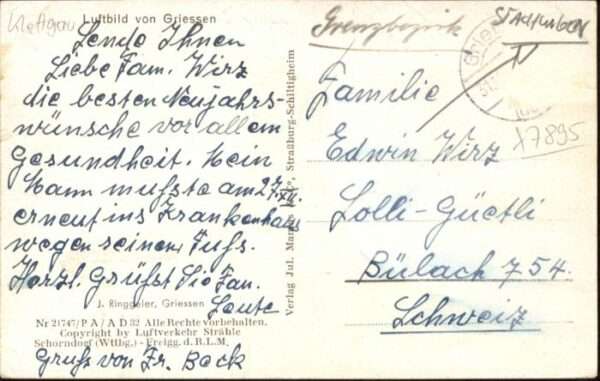 Klettgau
Luftbild von Griessen
Sende Ihnen
Liebe Fam. Wirz
die besten Neujahrs-
wünsche vor allem
Gesundheit. Mein
Mann mußte am 27. XII.
erneut ins Krankenhaus
wegen seinem Fuß.
Herzl. Grüßt Sie Fam.
J. Ringgeler, Griessen
Nr 21747/PA/AD32 Alle Rechte vorbehalten.
Copyright by Luftverkehr Strähle
Schorndorf (Wttbg.) - Freigg. d. R.L.M.
Gruß von Fr. Back
Verlag Jul. Straßburg-Schiltigheim
Grenzbezirk
Familie
Edwin Wirz
Lolli-Güetli
Bülach 754.
Schweiz
X7895